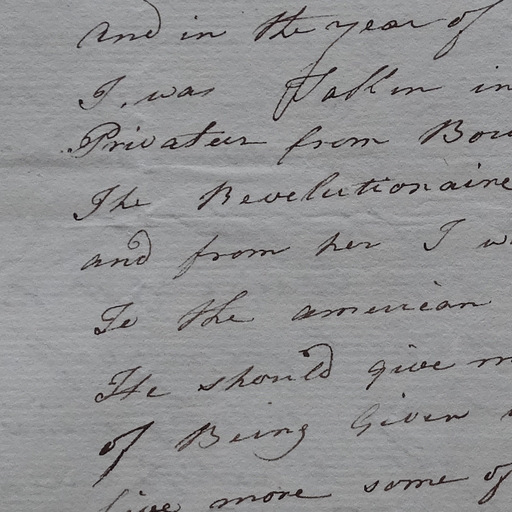 And in the year of
I. was Tallen in
Privateer from Bou
The Revelutionaire
and from her I w
To the american
He should give m
of Being Given
more some of